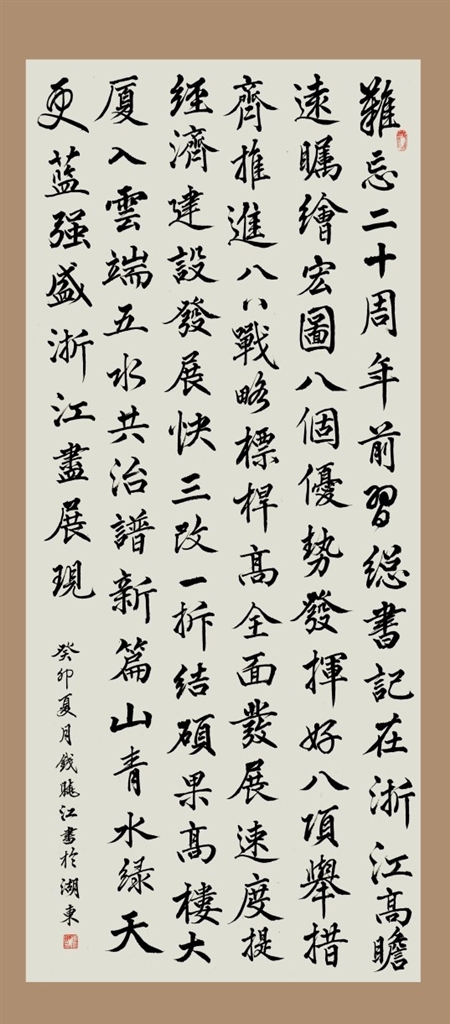 難忘二十周年前習総書記在浙江高瞻
遠矚繪宏圖八個優勢發揮好八項舉措
齊推進八八戰略標桿高全面發展速度提
經濟建設發展快三改一拆結碩果高樓大
厦入雲端五水共治譜新篇山青水绿天
更藍强盛浙江盡展現
癸卯夏月錢曉江書於湖東